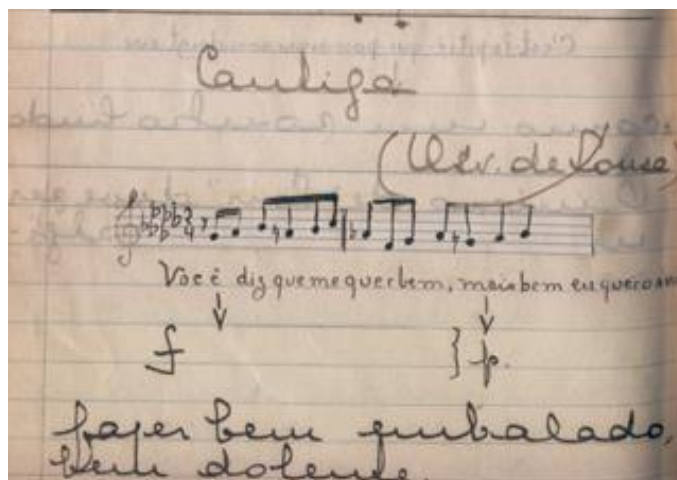 Cantiga
(Osv. de Souza)
Você diz que me quer bem, mais bem eu quero a
f } p.
fazer bem embalado,
bem dolente.